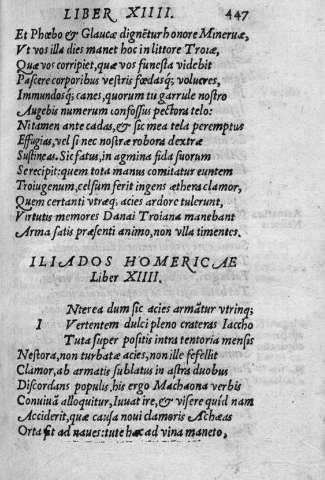 LIBER XIIII. 447
Et Phœbo & Glaucæ dignẽtur honore Mineruæ,
Vt vos illa dies manet hoc in littore Troiæ,
Quæ vos corripiet, quæ vos funesta videbit
Pascere corporibus vestris fœdasq; volucres,
Immundosq; canes, quorum tu garrule nostro
Augebis numerum confossus pectora telo:
Ni tamen ante cadas, & sic mea tela peremptus
Effugias, vel si nec nostræ robora dextræ
Sustineas. Sic fatus, in agmina fida suorum
Se recipit: quem tota manus comitatur euntem
Troiugenum, celsum ferit ingens æthera clamor,
Quem certanti vtræq; acies ardore tulerunt,
Virtutis memores Danai Troiana manebant
Arma satis præsenti animo, non vlla timentes.
ILIADOS HOMERICAE
Liber XIIII.
Nterea dum sic acies armãtur vtrinq;
I Vertentem dulci pleno crateras Iaccho
Tuta super positis intra tentoria mensis
Nestora, non turbatæ acies, non ille fefellit
Clamor, ab armatis sublatus in astra duobus
Discordans populis, his ergo Machaona verbis
Conuiuã alloquitur, Iuuat ire, & visere quid nam
Acciderit, quæ causa noui clamoris Achæas
Orta sit ad naues: tute hac ad vina maneto,